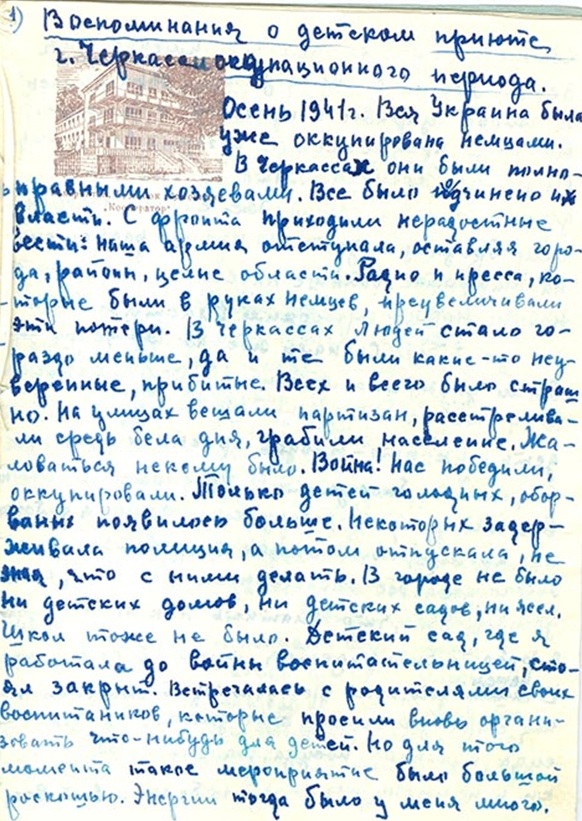 1) Воспоминания о детском приюте
г. Черкассы оккупационного периода.
Осень 1941 г. Вся Украина была
уже оккупирована немцами.
В Черкассах они были полно-
правными хозяевами. Все было подчинено их
власти. С фронта приходили нерадостные
вести: наша армия отступала, оставляя горо-
да, районы, целые области. Радио и пресса, ко-
торые были в руках немцев, преувеличивали
эти потери. В Черкассах людей стало го-
раздо меньше, да и те были какие-то неу-
веренные, прибитые. Всех и всего было страш
но. На улицах вешали партизан, расстрелива-
ли средь бела дня, грабили население. Жа-
ловаться некому было. Война! Нас победили,
оккупировали. Только детей голодных, обор-
ванных появилось больше. Некоторых задер-
живала полиция, а потом отпускала, не
зная, что с ними делать. В городе не было
ни детских домов, ни детских садов, ни ясел.
Школ тоже не было. Детский сад, где я
работала до войны воспитательницей, сто-
ял закрыт. Встречалась с родителями своих
воспитаников, которые просили вновь органи-
зовать что-нибудь для детей. Но для того
момента такое мероприятие было большой
роскошью. Энергии тогда было у меня много.